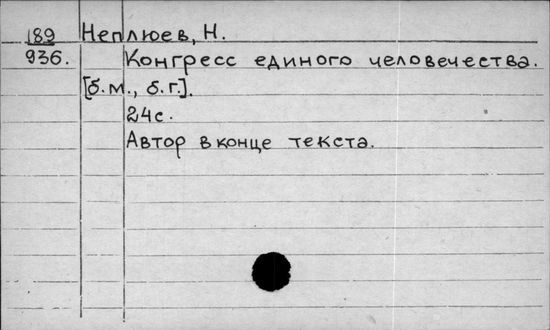 189 Неплюев, Н.
936. Конгресс единого человечества.
[б.м., б.г.].
24с.
Автор в конце текста.